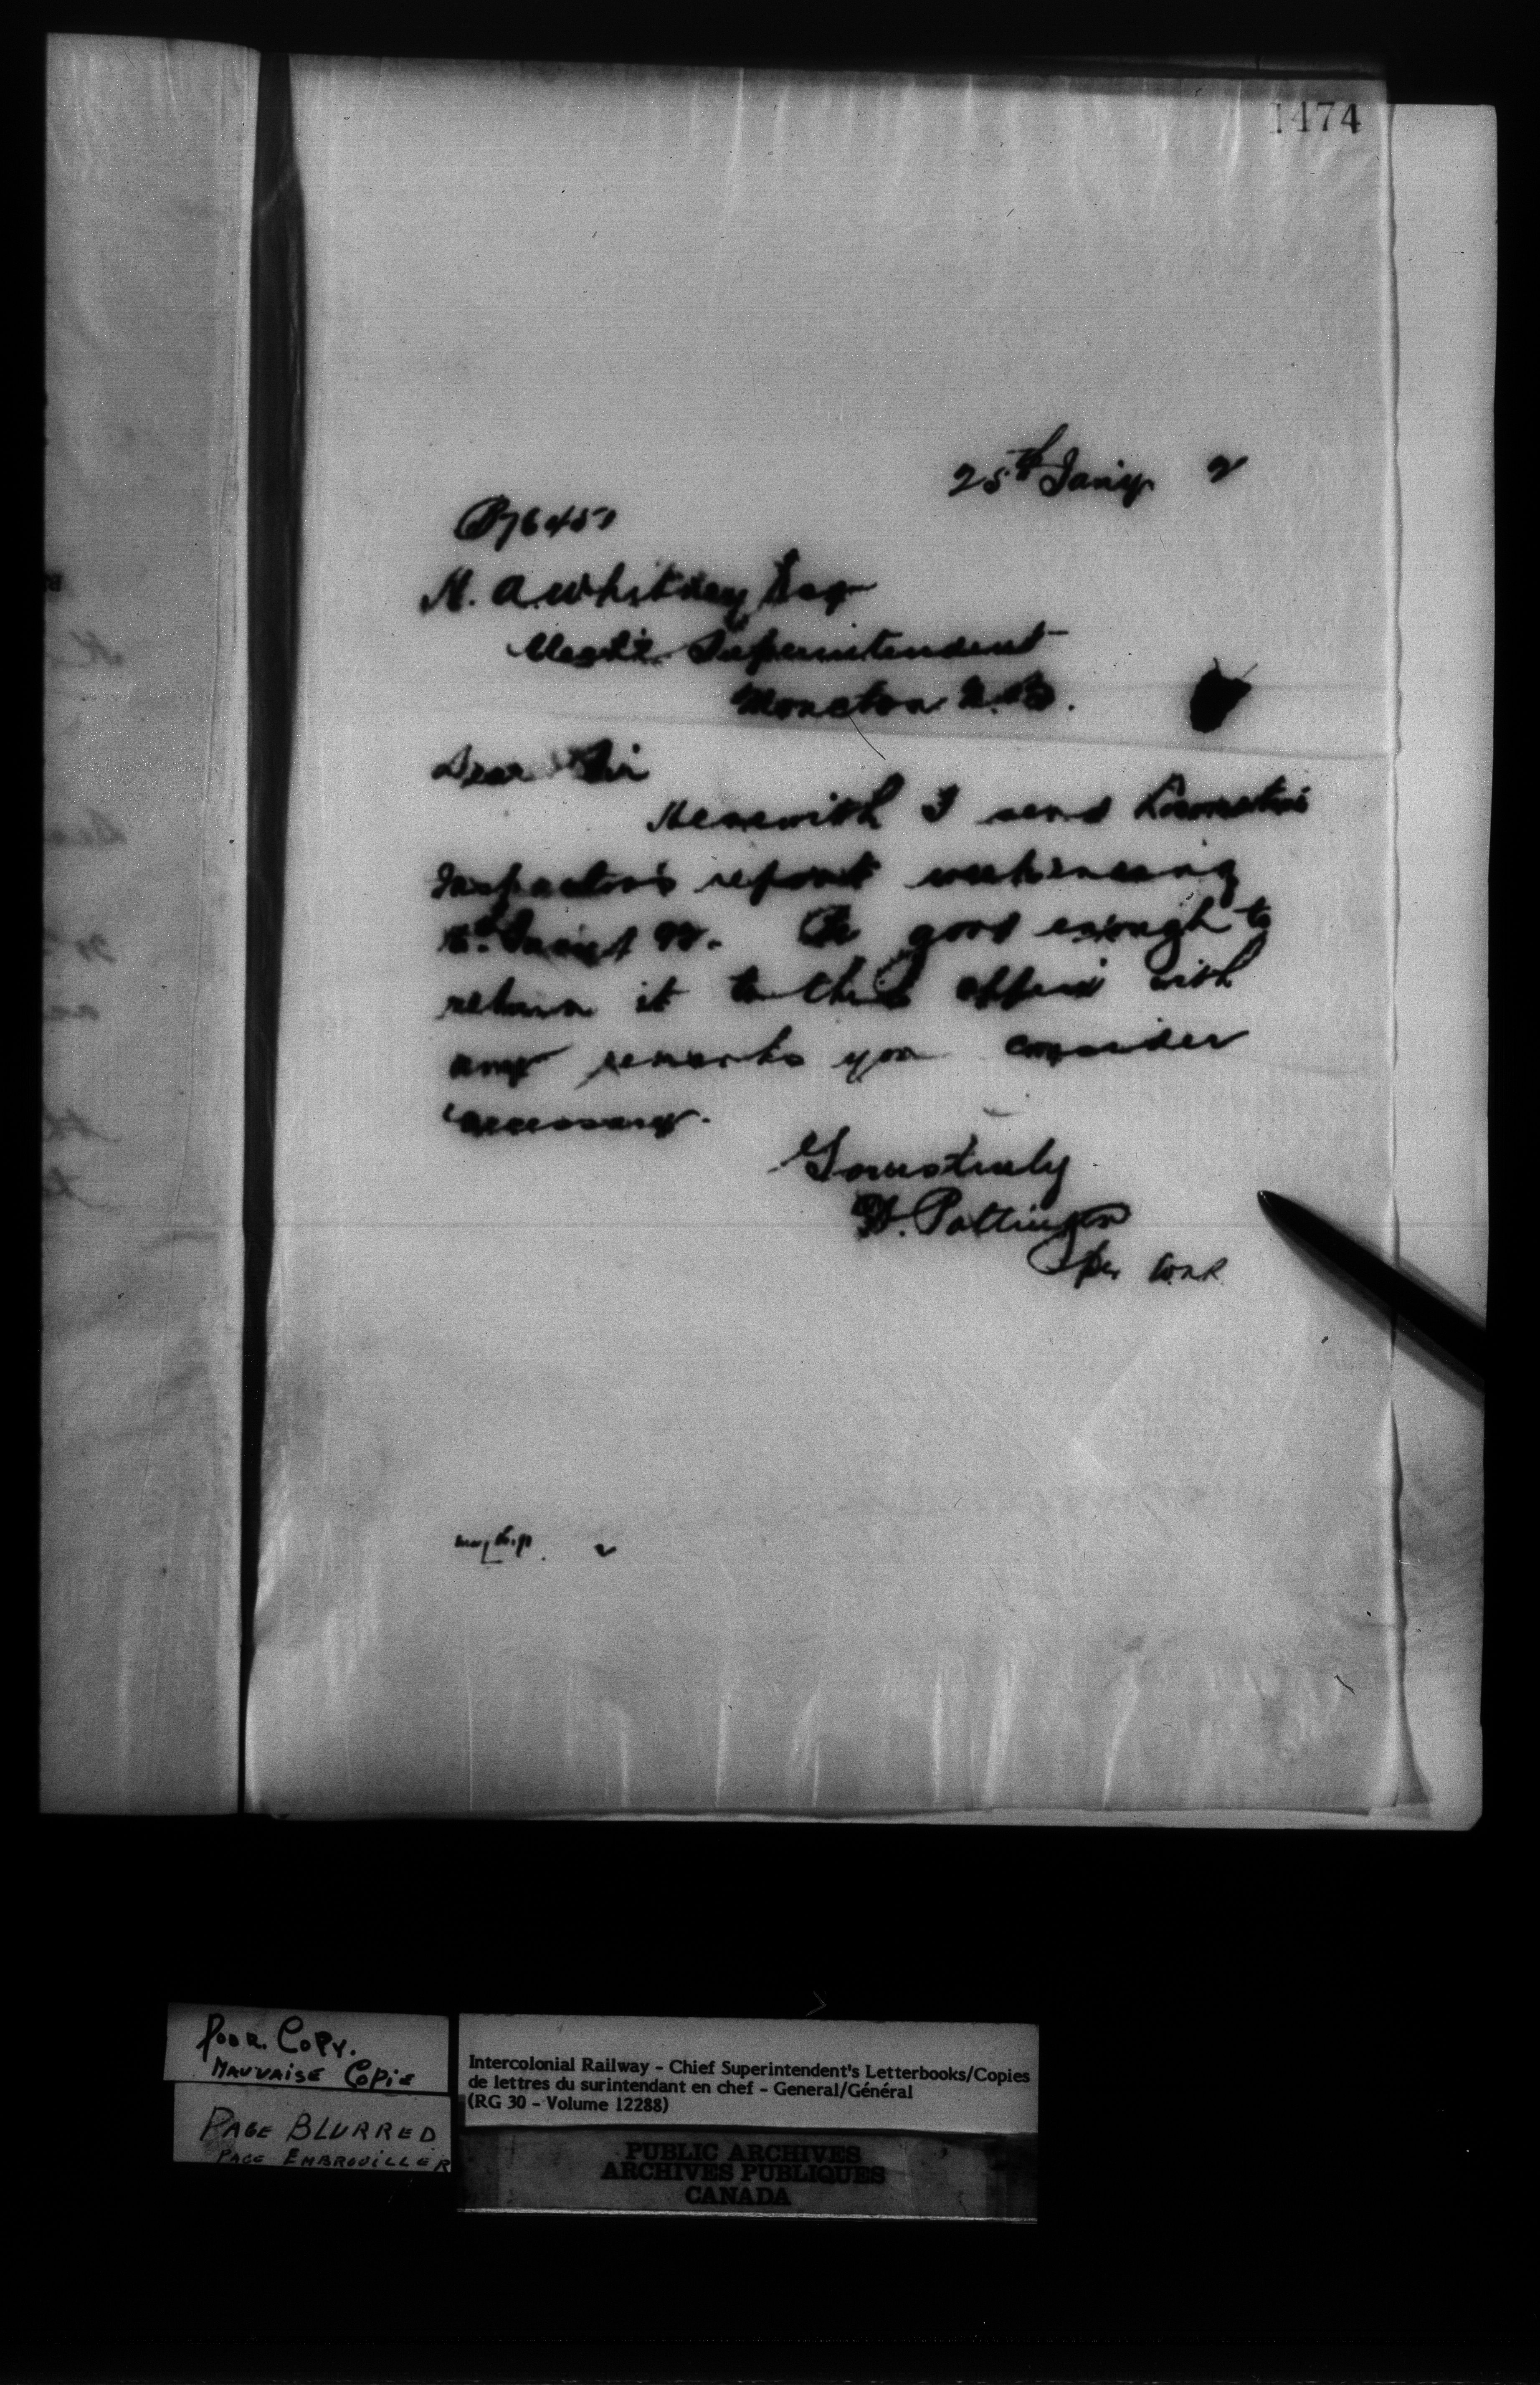 1474
25th Jany 2
P76451
H. A. Whitney Esq
Mech'l Superintendent
Moncton N.B.
Dear Sir
Herewith I send Locomotive
Inspector's report week ending
Jany 92. Be good enough to
return it to this office with
any remarks you consider
necessary.
Yours truly
D. Pottinger
per
Poor Copy.
Mauvaise Copie
Page Blurred
Page Embrouiller
Intercolonial Railway - Chief Superintendent's Letterbooks/Copies
de lettres du surintendant en chef - General/Général
(RG 30 - Volume 12288)
PUBLIC ARCHIVES
ARCHIVES PUBLIQUES
CANADA